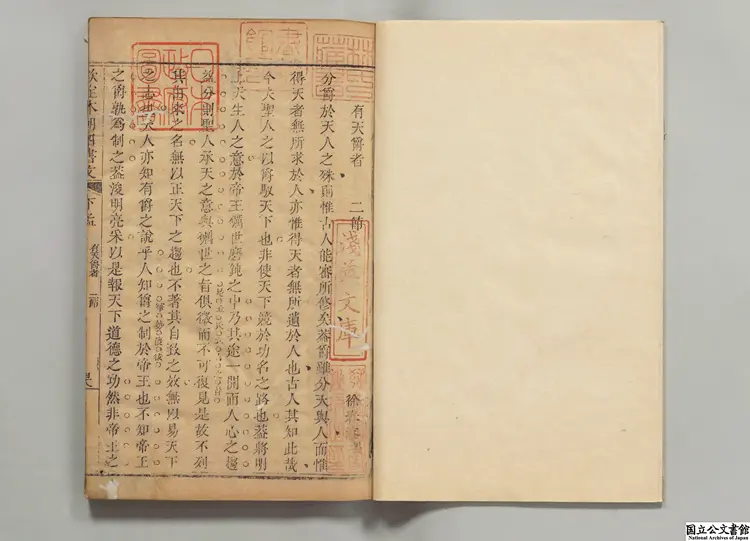 林氏藏書
日本政府圖書
淺草文庫
有天爵者　二節　徐
分爵於天人之殊而惟古人能審所修矣蓋爵雖分天與人而惟
得天者無所求於人亦惟得天者無所遺於人也古人其知此哉
今夫聖人之以爵馭天下也非使天下競於功名之路也蓋將明
上天生人之意於帝王礪世磨鈍之中乃其途一開而人心之趨
益分則聖人承天之意與礪世之旨俱微而不可復見是故不列
其由來之名無以正天下之趨也不著其自致之效無以易天下
之志也夫人亦知有爵之說乎人知爵之制於帝王也不知帝王
之爵孰爲制之蓋浚明亮采以是報天下道德之功然非帝王之
欽定本朝四書文　下孟　有天爵者　二節
国立公文書館
National Archives of Japan